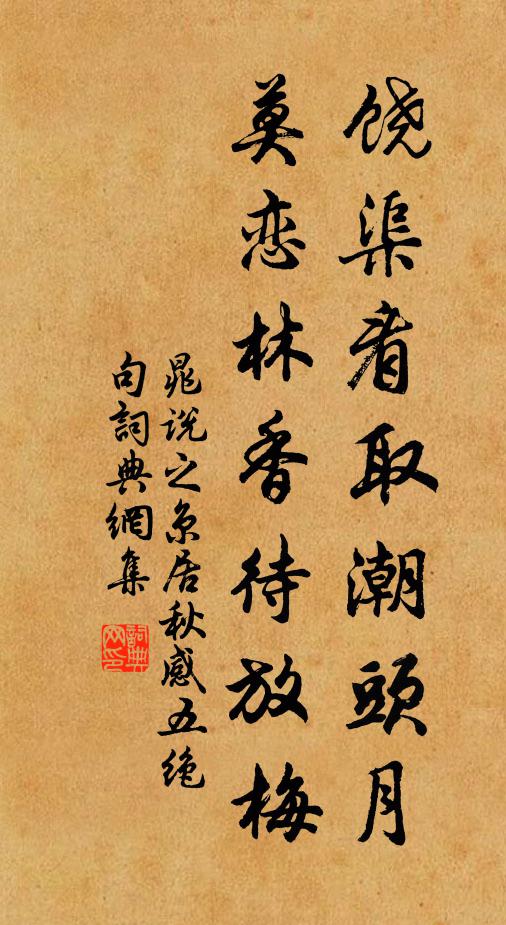 饶渠看取潮頭月
莫恋林香待放梅
晁说之京居秋感五绝
句詞典網集
詞典网印